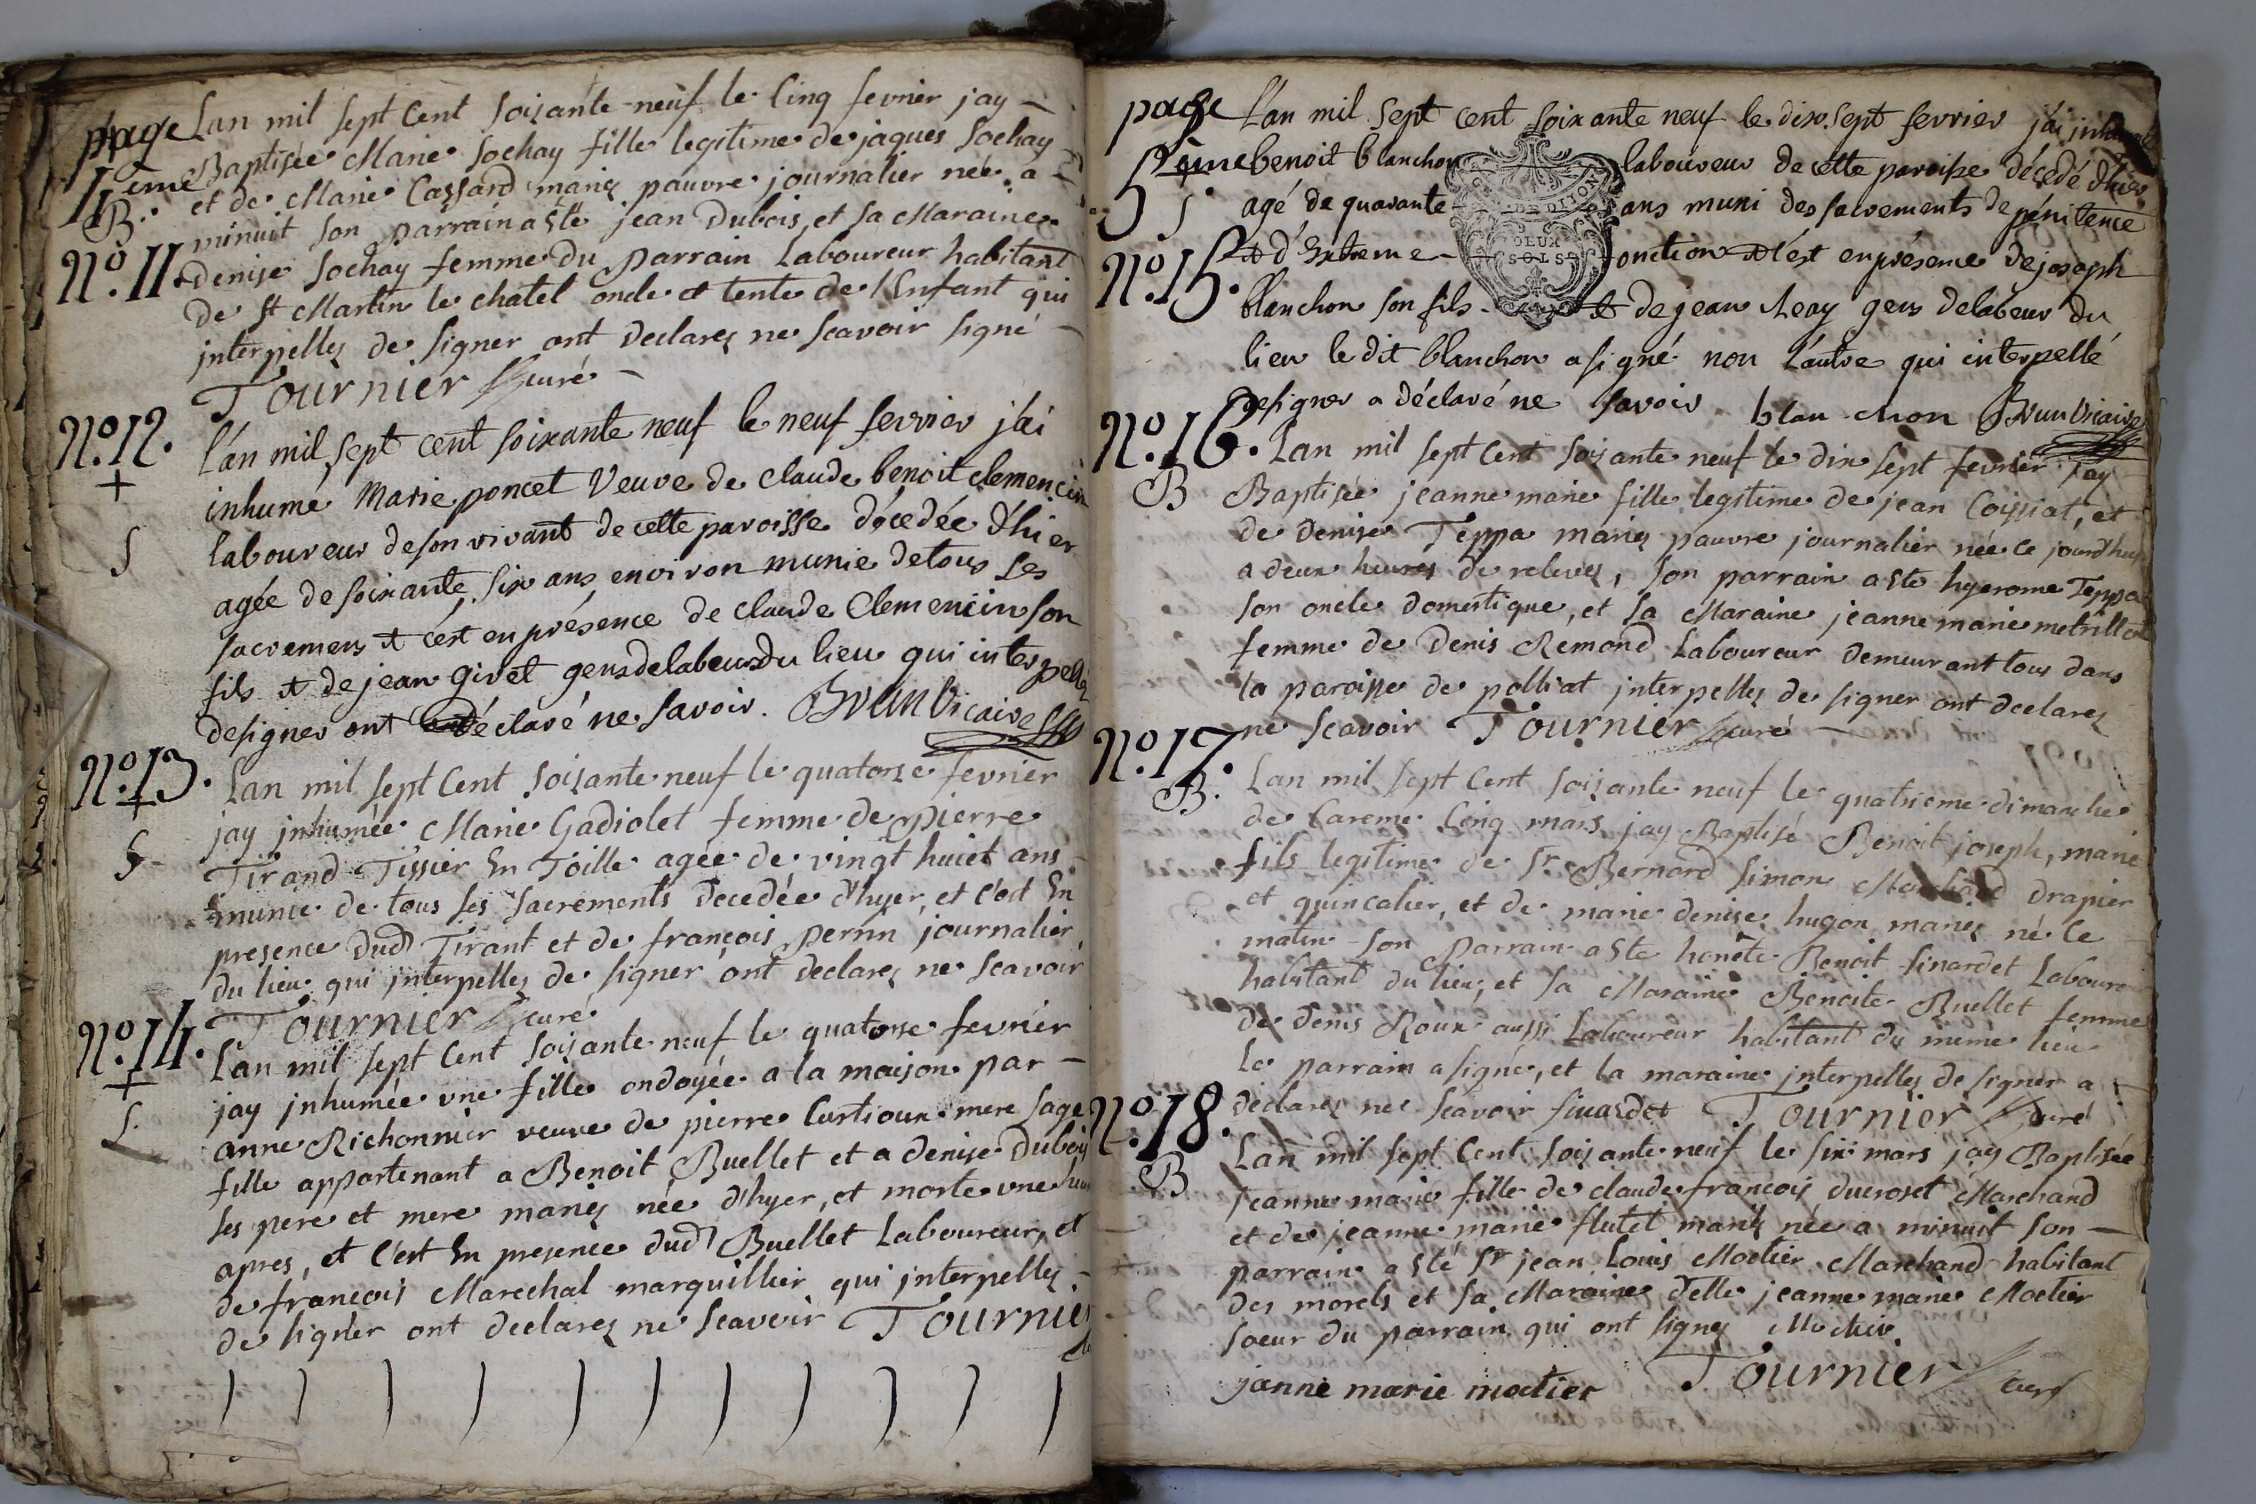 page
4ème
B.
N.o 11.
Lan mil sept Cent soixante-neuf le Cinq fevrier jay
Baptisée Marie Sochay fille legitime de jaques Sochay
et de Marie Cassard mariez pauvre journalier née a
minuit son parrain a Eté jean Dubois et sa Maraine
denise Sochay femme du parrain Laboureur habitant
de St Martin le chatel oncle et tente de l'Enfant qui
interpellez de signer ont declarez ne scavoir signé
Tournier curé
N.o 12.
+
S
l'an mil sept cent soixante neuf le neuf fevrier j'ai
inhumé Marie poncet Veuve de claude benoit clemencin
laboureur de son vivant de cette paroisse décedée d'hier
agée de soixante six ans environ munie de tous les
sacremens et c'est en présence de claude Clemencin son
fils et de jean givet gens de labeur du lieu qui interpellez
de signer ont déclaré ne savoir. Brun Vicaire
N.o 13.
+
S
Lan mil sept Cent soixante neuf le quatorze fevrier
jay jnhumée Marie Gadiolet femme de pierre
Tirand Tissier En Toille agée de vingt huict ans
munie de tous ses sacrements decedée d'hyer, et c'est En
presence dud Tirant et de françois perrin journalier
du lieu qui jnterpellez de signer ont declarez ne scavoir
Tournier curé
N.o 14.
+
S.
L'an mil sept Cent soixante neuf le quatorze fevrier
jay jnhumée une fille ondoyée a la maison par
anne Richonnier veuve de pierre Curtioux mere sage
fille appartenant a Benoit Buellet et a denise Dubois
ses pere et mere mariez née d'hyer, et morte une heure
apres, et c'est En presence dud Buellet Laboureur, et
de françois Marechal marquillier qui jnterpellez
de signer ont declarez ne scavoir Tournier
page
5ème
S
N.o 15.
L'an mil sept cent soixante neuf le dix sept fevrier j'ai inhumé
benoit blanchon laboureur de cette paroisse décedé d'hier
agé de quarante ans muni des sacrements de pénitence
et d'Extreme onction et c'est en présence de joseph
blanchon son fils et de jean Leay gens de labeur du
lieu le dit blanchon a signé non l'autre qui interpellé
de signer a déclaré ne savoir. blan chon Brun Vicaire
DE DIJON
DEUX
SOLS
N.o 16.
B
Lan mil sept Cent soixante neuf le dix sept fevrier jay
Baptisée jeanne marie fille legitime de jean Coissiat, et
de Denise Teppa mariez pauvre journalier née ce jourd'huy
a deux heures de relevez, son parrain a Ete hyerome Teppa
son oncle domestique, et sa Maraine jeanne marie metrillot
femme de Denis Remond Laboureur demeurant tous dans
la paroisse de polliat jnterpellez de signer ont declarez
ne scavoir Tournier curé
N.o 17.
B.
Lan mil sept Cent soixante neuf le quatrieme dimanche
de Careme Cinq mars jay Baptisé Benoit joseph, marie
fils legitime de Sr Bernard Simon Marchand drapier
et quincalier, et de marie denise hugon mariez né le
matin son parrain a Ete honête Benoit Sinardet Laboure
habitant du lieu, et sa Maraine Benoite Buellet femme
de denis Roux aussi Laboureur habitant du même lieu
le parrain a signé, et la maraine jnterpellez de signer a
declarez ne scavoir sinardet Tournier curé
N.o 18.
B
Lan mil sept Cent soixante neuf le six mars jay Baptisée
jeanne marie fille de claude françois ducroset Marchand
et de jeanne marie flutet mariez née a minuit son
parrain a Eté Sr jean Louis Moctier Marchand habitant
des morels et sa Maraine delle jeanne marie Moctier
soeur du parrain qui ont signez Moctier
janne marie moctier Tournier curé